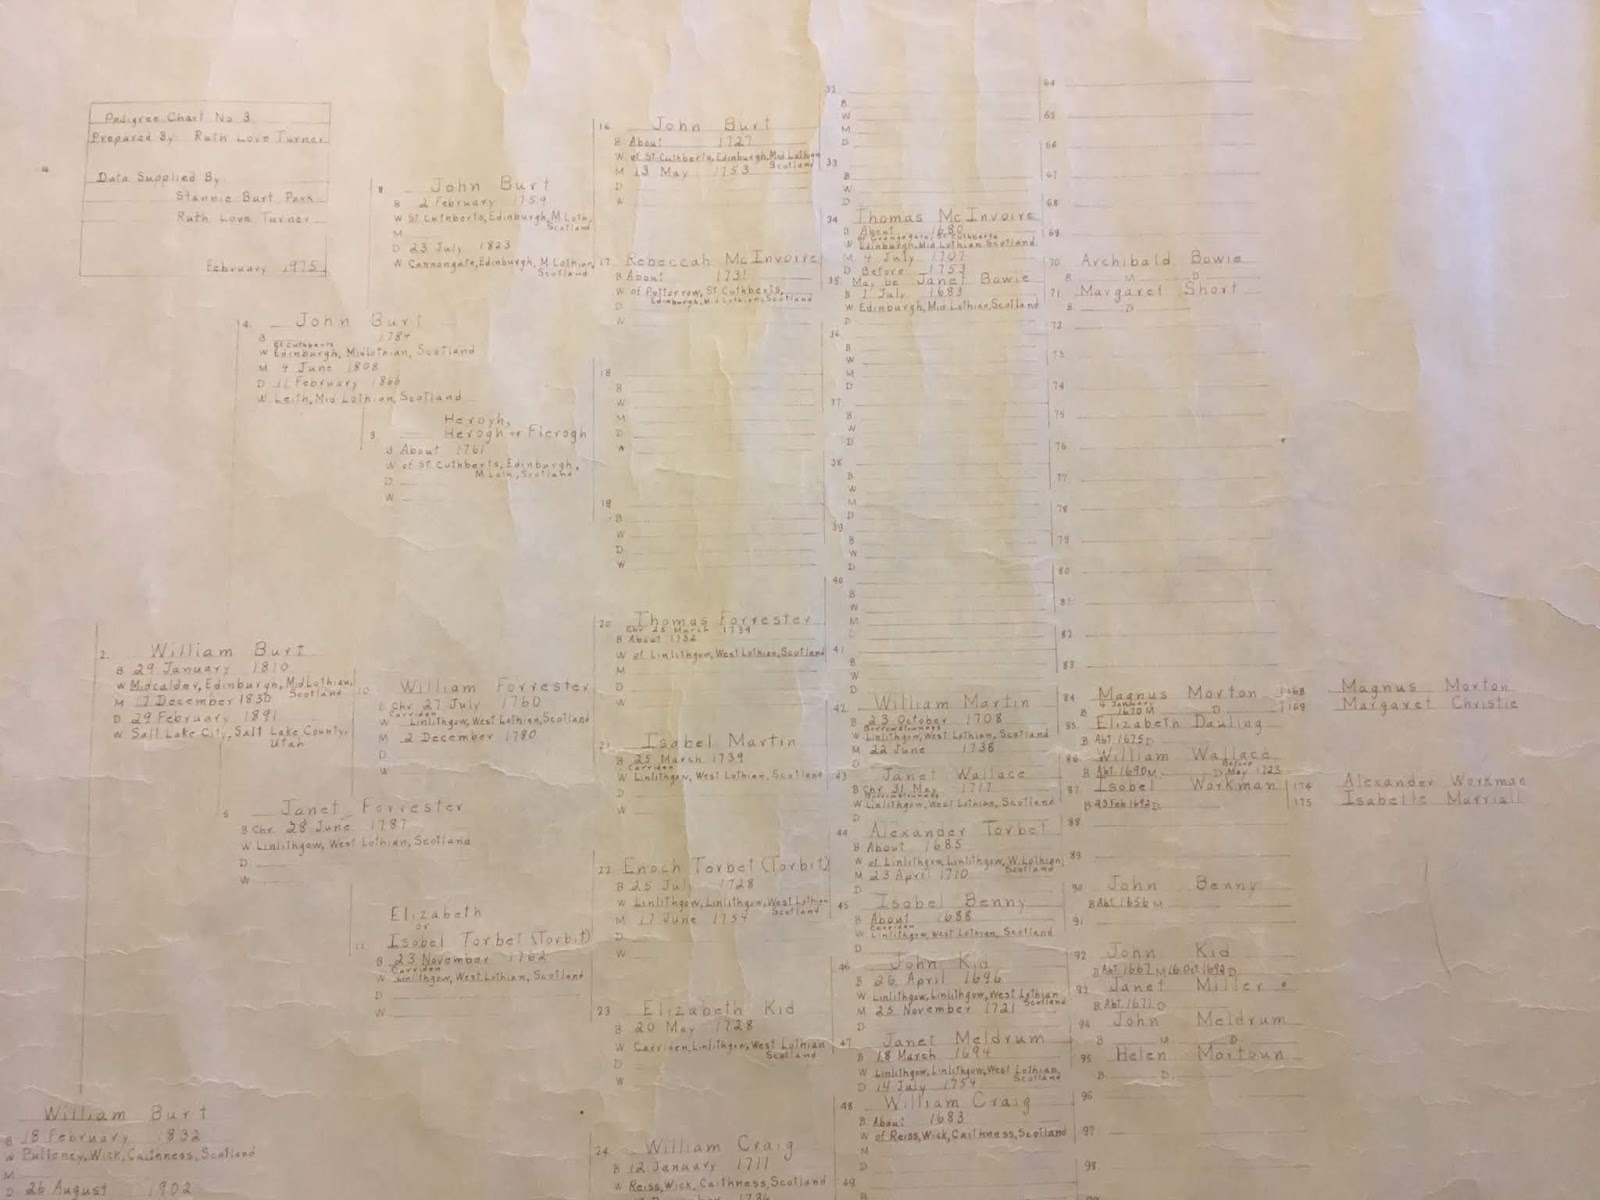 Pedigree Chart No 3
Prepared By Ruth Love Turner
Data Supplied By
Stannie Burt Park
Ruth Love Turner
February 1975
2. William Burt
B 29 January 1810
W Midcalder, Edinburgh, Midlothian, Scotland
M 17 December 1830
D 29 February 1891
W Salt Lake City, Salt Lake County, Utah
William Burt
B 18 February 1832
W Pulteney, Wick, Caithness, Scotland
M
D 26 August 1902
4. John Burt
B 1784
St Cuthberts
W Edinburgh, Midlothian, Scotland
M 4 June 1808
D 11 February 1866
W Leith, Mid Lothian, Scotland
5. Janet Forrester
B Chr. 28 June 1787
W Linlithgow, West Lothian, Scotland
D
W
8 John Burt
B 2 February 1759
W St Cuthberts, Edinburgh, M. Loth, Scotland
M
D 23 July 1823
W Cannongate, Edinburgh, M. Lothian, Scotland
9 Heroyh,
Herogh or Fierogh
B About 1761
W of St Cuthberts, Edinburgh, M. Loth, Scotland
D
W
10 William Forrester
B Chr. 27 July 1760
Carriden
W Linlithgow, West Lothian, Scotland
M 2 December 1780
D
W
11 Elizabeth
or
Isobel Torbet (Torbit)
B 23 November 1762
Carriden
W Linlithgow, West Lothian, Scotland
D
W
16. John Burt
B About 1727
W of St Cuthberts, Edinburgh, Mid Lothian Scotland
M 13 May 1753
D
W
17. Rebeccah McInvoire
B About 1731
W of Potterrow, St Cuthberts,
Edinburgh, Mid Lothian, Scotland
D
W
18
B
W
M
D
W
18
B
W
D
W
20 Thomas Forrester
Chr 25 March 1739
B About 1732
W of Linlithgow, West Lothian, Scotland
M
D
W
21 Isabel Martin
B 25 March 1739
Carriden
W Linlithgow, West Lothian, Scotland
D
W
22 Enoch Torbet (Torbit)
B 25 July 1728
W Linlithgow, Linlithgow, West Lothian Scotland
M 17 June 1754
D
W
23 Elizabeth Kid
B 20 May 1728
W Carriden, Linlithgow, West Lothian Scotland
D
W
24. William Craig
B 12 January 1711
W Reiss, Wick, Caithness, Scotland
32
B
W
M
D
33
B
W
D
34 Thomas McInvoire
B About 1680
W Edinburgh, Mid Lothian Scotland
M 4 July 1707
D Before 1753
35 May be Janet Bowie
B 1 July 1683
W Edinburgh, Mid Lothian, Scotland
D
36
B
W
M
D
37
B
W
D
38
B
W
M
D
39
B
W
D
40
B
W
M
D
41
B
W
D
42 William Martin
B 23 October 1708
Borrowstowness
W Linlithgow, West Lothian, Scotland
M 22 June 1738
D
43 Janet Wallace
B Chr 31 May 1717
Borrowstowness
W Linlithgow, West Lothian, Scotland
D
44 Alexander Torbet
B About 1685
W of Linlithgow, Linlithgow, W. Lothian, Scotland
M 23 April 1710
D
45 Isobel Benny
B About 1688
Carriden
W Linlithgow, West Lothian, Scotland
D
46 John Kid
B 26 April 1696
W Linlithgow, Linlithgow, West Lothian Scotland
M 25 November 1721
D
47 Janet Meldrum
B 18 March 1694
W Linlithgow, Linlithgow, West Lothian, Scotland
D 14 July 1754
48 William Craig
B About 1683
W of Reiss, Wick, Caithness, Scotland
M
D
49
B
64
65
66
67
68
69
70 Archibald Bowie
B M D
71 Margaret Short
B D
72
73
74
75
76
77
78
79
80
81
82
83
84 Magnus Morton
4 January
B 1670 M D
85 Elizabeth Dauling
B Abt 1675 D
86 William Wallace
B Abt 1690 M. D Before May 1723
87 Isobel Workman
B 23 Feb 1692 D.
88
89
90 John Benny
B Abt. 1656 M
91
92 John Kid
B Abt 1667 M 16 Oct 1692 D
93 Janet Miller
B Abt. 1671 D
94 John Meldrum
B M D
95 Helen Mortoun
B D
96
97
98
168 Magnus Morton
169 Margaret Christie
174 Alexander Workman
175 Isabelle Marriall